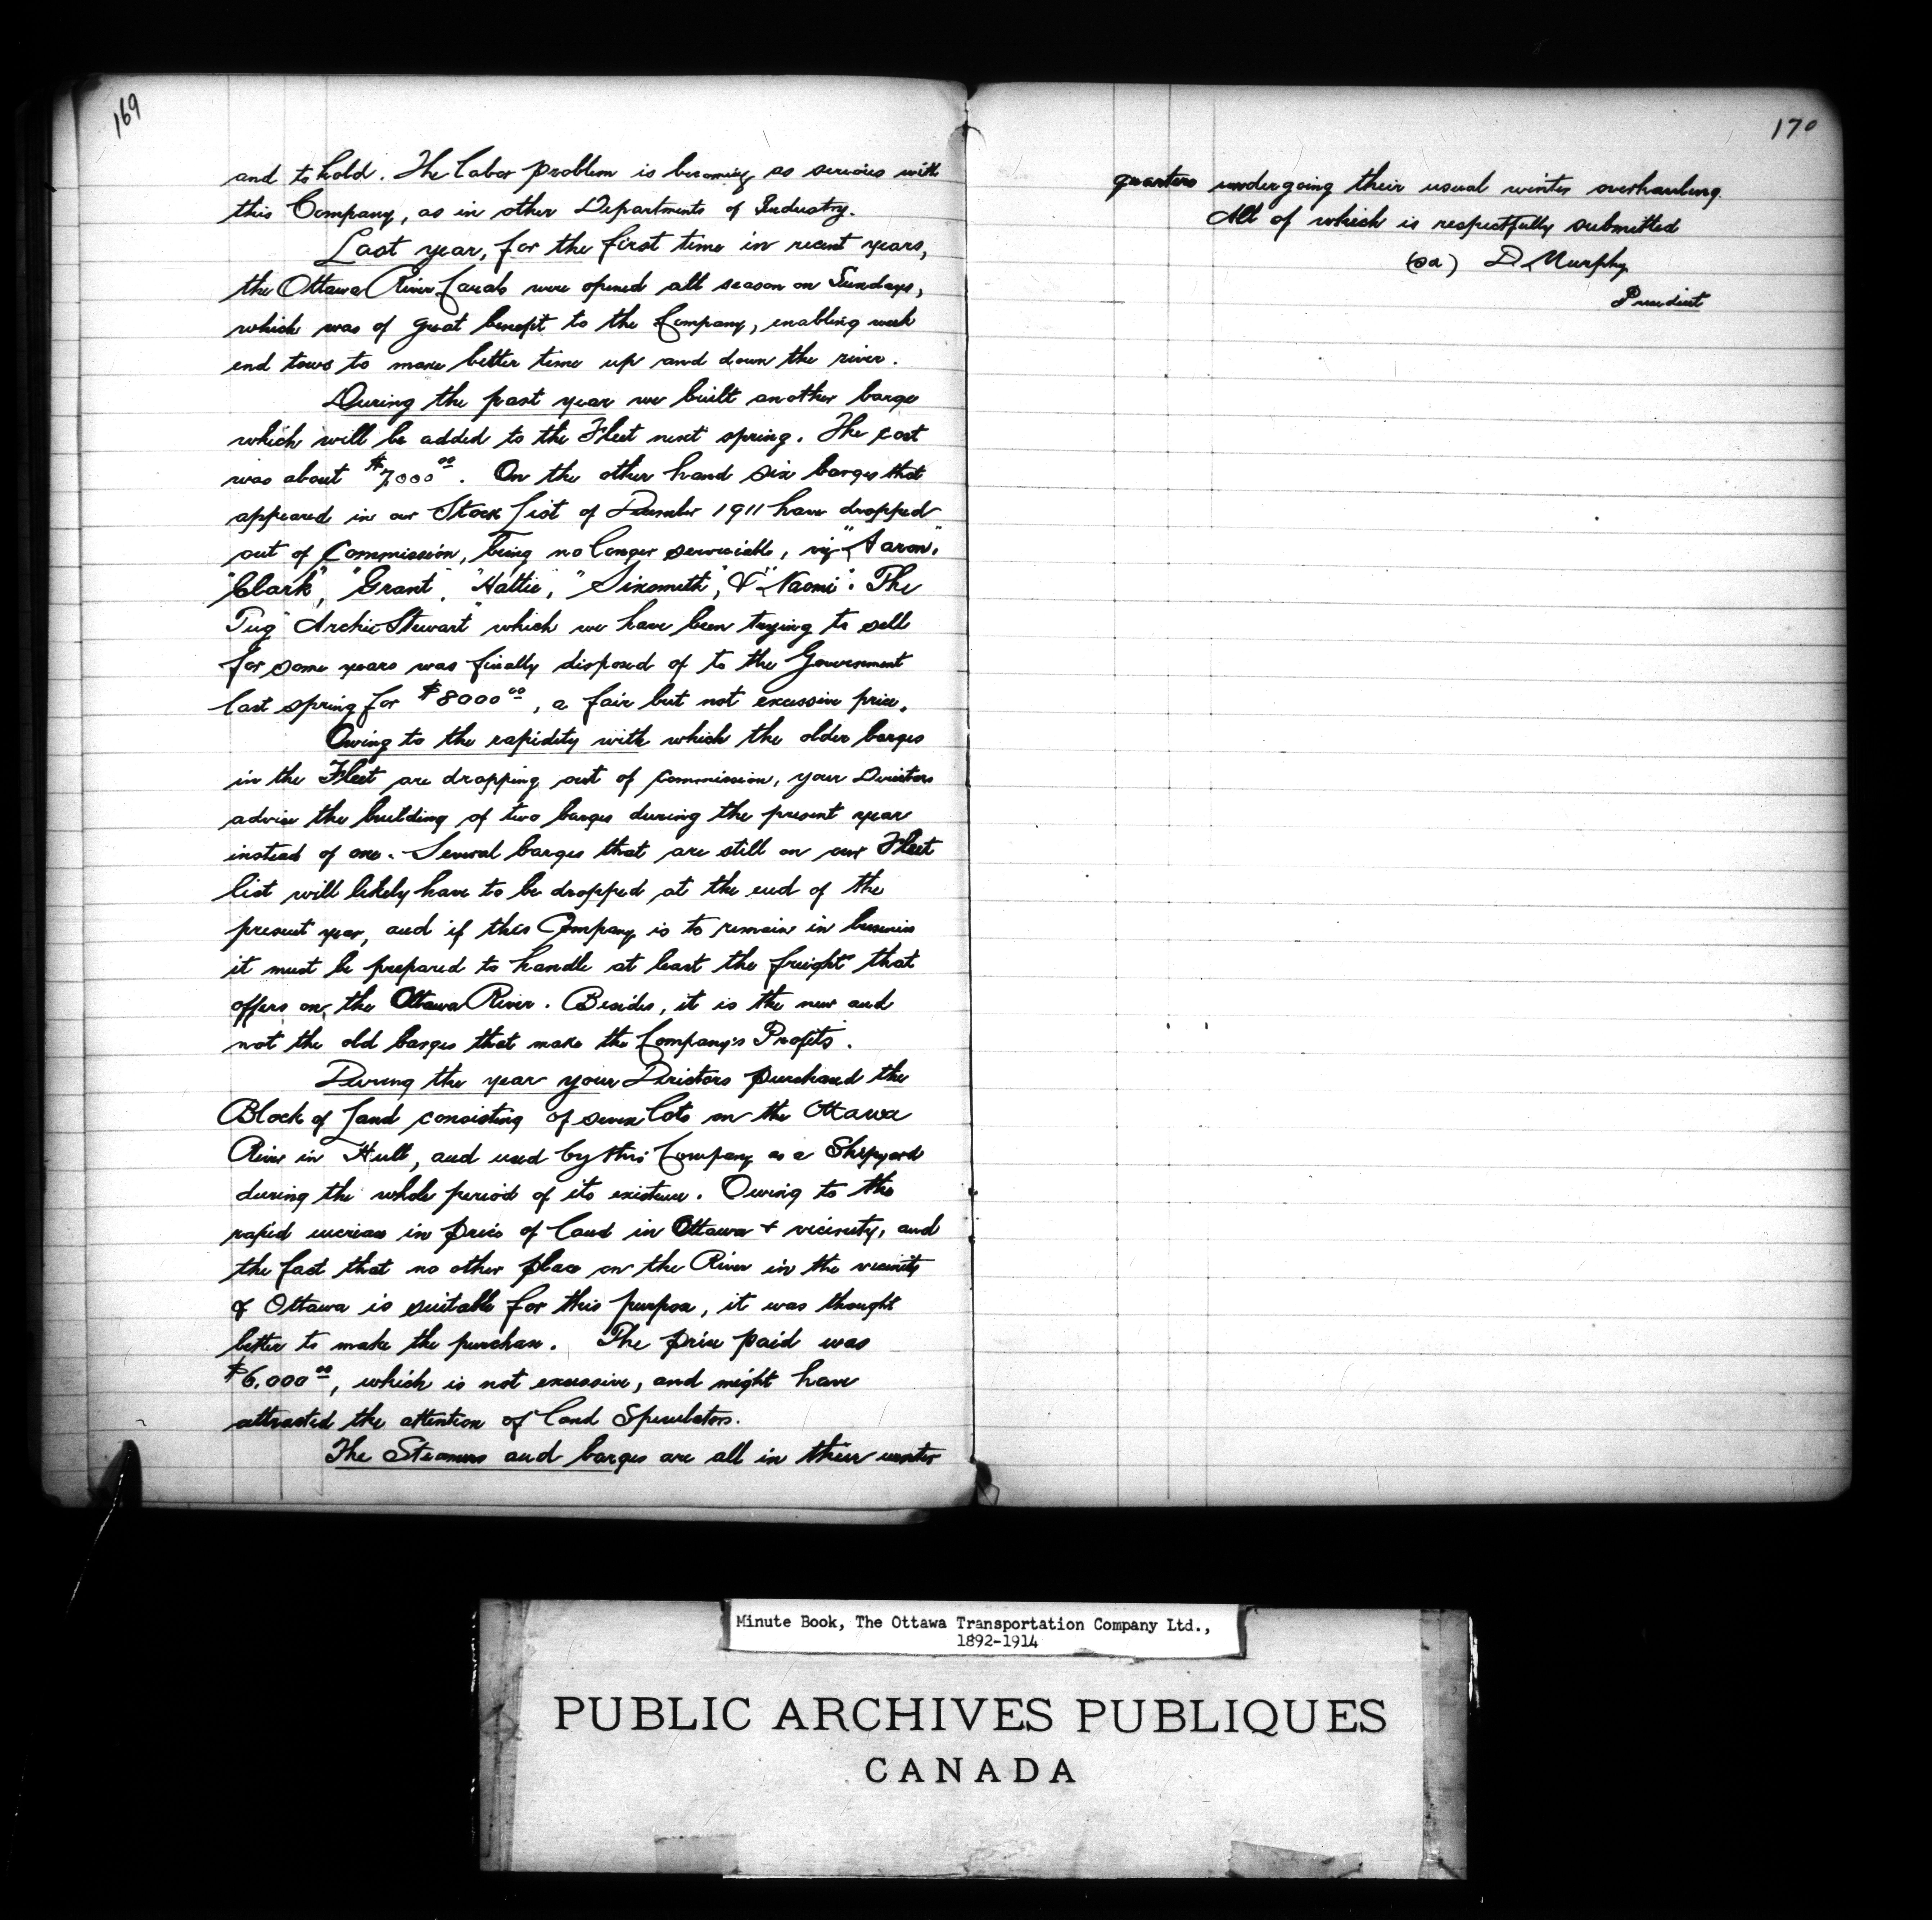 169
and to hold. The labor problem is becoming as serious with
this Company, as in other Departments of Industry.
Last year, for the first time in recent years,
the Ottawa River Canals were opened all season on Sundays,
which was of great benefit to the Company, enabling week
end tows to make better time up and down the river.
During the past year we built another barge
which will be added to the Fleet next spring. The cost
was about $7,000 00. On the other hand six barges that
appeared in our Stock List of December 1911 have dropped
out of Commission, being no longer serviceable, viz "Aaron",
"Clark", "Grant", "Hattie", "Sixsmith", & "Naomi". The
Tug "Archie Stewart" which we have been trying to sell
for some years was finally disposed of to the Government
last spring for $8000 00, a fair but not excessive price.
Owing to the rapidity with which the older barges
in the Fleet are dropping out of commission, your Directors
advise the building of two barges during the present year
instead of one. Several barges that are still on our Fleet
list will likely have to be dropped at the end of the
present year, and if this Company is to remain in business
it must be prepared to handle at least the freight that
offers on the Ottawa River. Besides, it is the new and
not the old barges that make the Company's Profits.
During the year your Directors purchased the
Block of Land consisting of seven lots on the Ottawa
River in Hull, and used by this Company as a Shipyard
during the whole period of its existence. Owing to the
rapid increase in price of land in Ottawa & vicinity, and
the fact that no other place on the River in the vicinity
of Ottawa is suitable for this purpose, it was thought
better to make the purchase. The price paid was
$6,000 00, which is not excessive, and might have
attracted the attention of land Speculators.
The Steamers and barges are all in their winter
170
quarters undergoing their usual winter overhauling.
All of which is respectfully submitted
D. Murphy
President
Minute Book, The Ottawa Transportation Company Ltd.,
1892-1914
PUBLIC ARCHIVES PUBLIQUES
CANADA